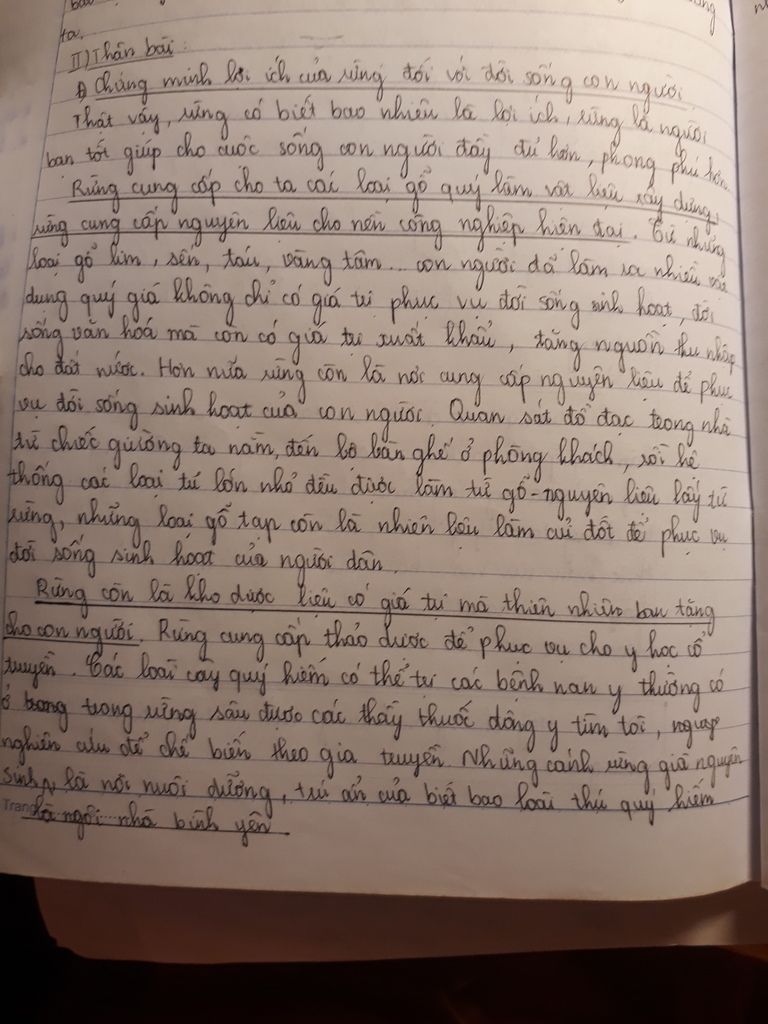 ta.
II) Thân bài:
1) Chứng minh lợi ích của rừng đối với đời sống con người
Thật vậy, rừng có biết bao nhiêu là lợi ích, rừng là người
bạn tốt giúp cho cuộc sống con người đầy đủ hơn, phong phú hơn.
Rừng cung cấp cho ta các loại gỗ quý làm vật liệu xây dựng,
rừng cung cấp nguyên liệu cho nền công nghiệp hiện đại. Từ những
loại gỗ lim, sến, táu, vàng tâm... con người đã làm ra nhiều vật
dụng quý giá không chỉ có giá trị phục vụ đời sống sinh hoạt, đời
sống văn hoá mà còn có giá trị xuất khẩu, tăng nguồn thu nhập
cho đất nước. Hơn nữa rừng còn là nơi cung cấp nguyên liệu để phục
vụ đời sống sinh hoạt của con người. Quan sát đồ đạc trong nhà
từ chiếc giường ta nằm, đến bộ bàn ghế ở phòng khách, rồi hệ
thống các loại tủ lớn nhỏ đều được làm từ gỗ-nguyên liệu lấy từ
rừng, những loại gỗ tạp còn là nhiên liệu làm củi đốt để phục vụ
đời sống sinh hoạt của người dân.
Rừng còn là kho dược liệu có giá trị mà thiên nhiên ban tặng
cho con người. Rừng cung cấp thảo dược để phục vụ cho y học cổ
truyền. Các loài cây quý hiếm có thể trị các bệnh nan y thường có
ở trong rừng sâu được các thầy thuốc đông y tìm tòi,
nghiên cứu để chế biến theo gia truyền. Những cánh rừng già nguyên
sinh là nơi nuôi dưỡng, trú ẩn của biết bao loài thú quý hiếm
Trang
là ngôi nhà bình yên